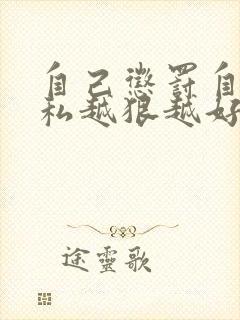 自己懲罰自
私越狠越好
途靈歌